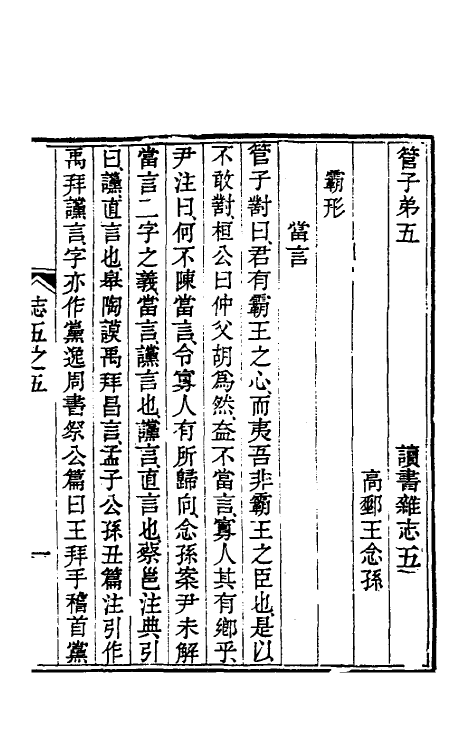 管子弟五　讀書雜志五
高郵王念孫
霸形
當言
管子對曰君有霸王之心而夷吾非霸王之臣也是以
不敢對桓公曰仲父胡爲然盍不當言寡人其有鄕乎
尹注曰何不陳當言令寡人有所歸向念孫案尹未解
當言二字之義當言讜言也讜言直言也蔡邕注典引
曰讜直言也皋陶謨禹拜昌言孟子公孫丑篇注引作
禹拜讜言字亦作黨逸周書祭公篇曰王拜手稽首黨
志五之五　一